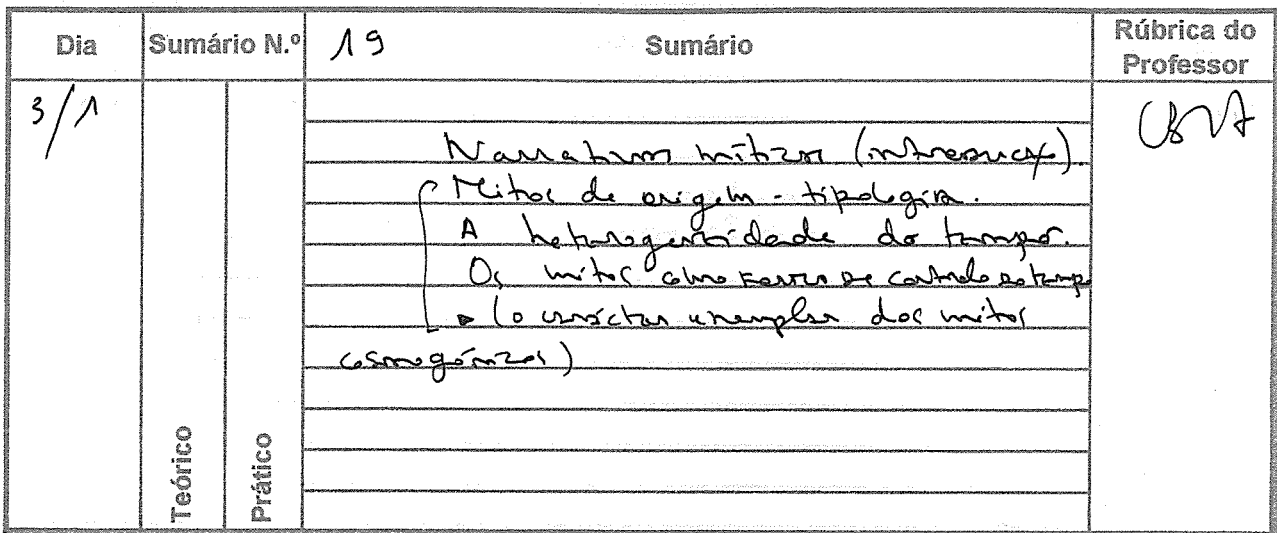 Dia Sumário N.º 19 Sumário Rúbrica do Professor
3/1
Narrativas míticas (introdução).
Mitos de origem - tipologia.
A heterogeneidade do tempo.
Os mitos como de controle do tempo
(o carácter exemplar dos mitos
cosmogónicos)
Teórico
Prático